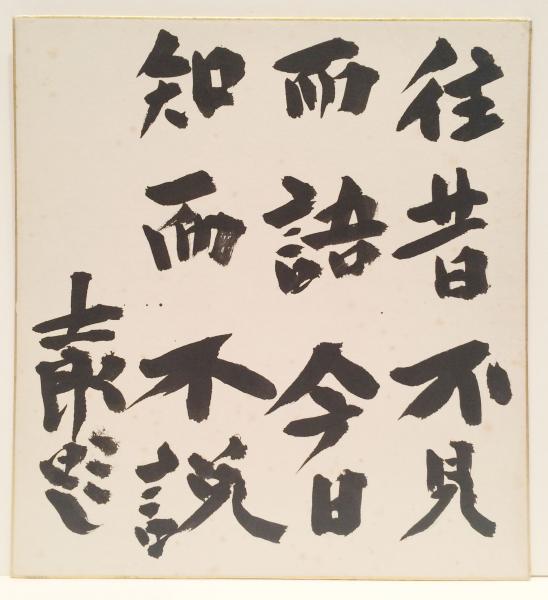 往昔不見
而語今日
知而不説